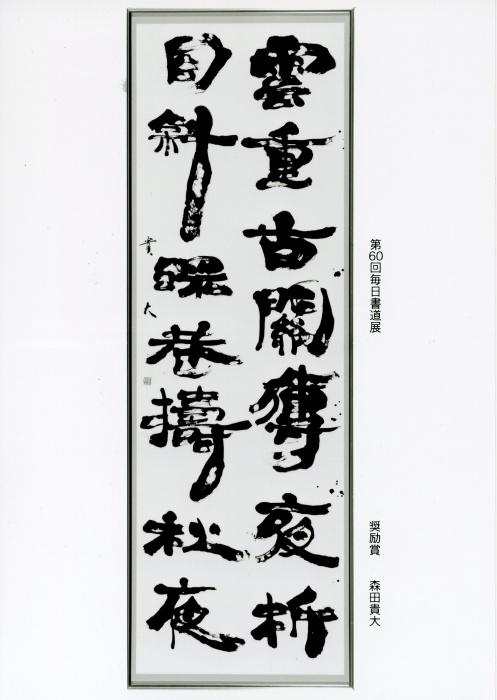 第60回毎日書道展
奨励賞 森田貴大
雲重古關傳夜柝
月斜深巷擣秋夜
貴大